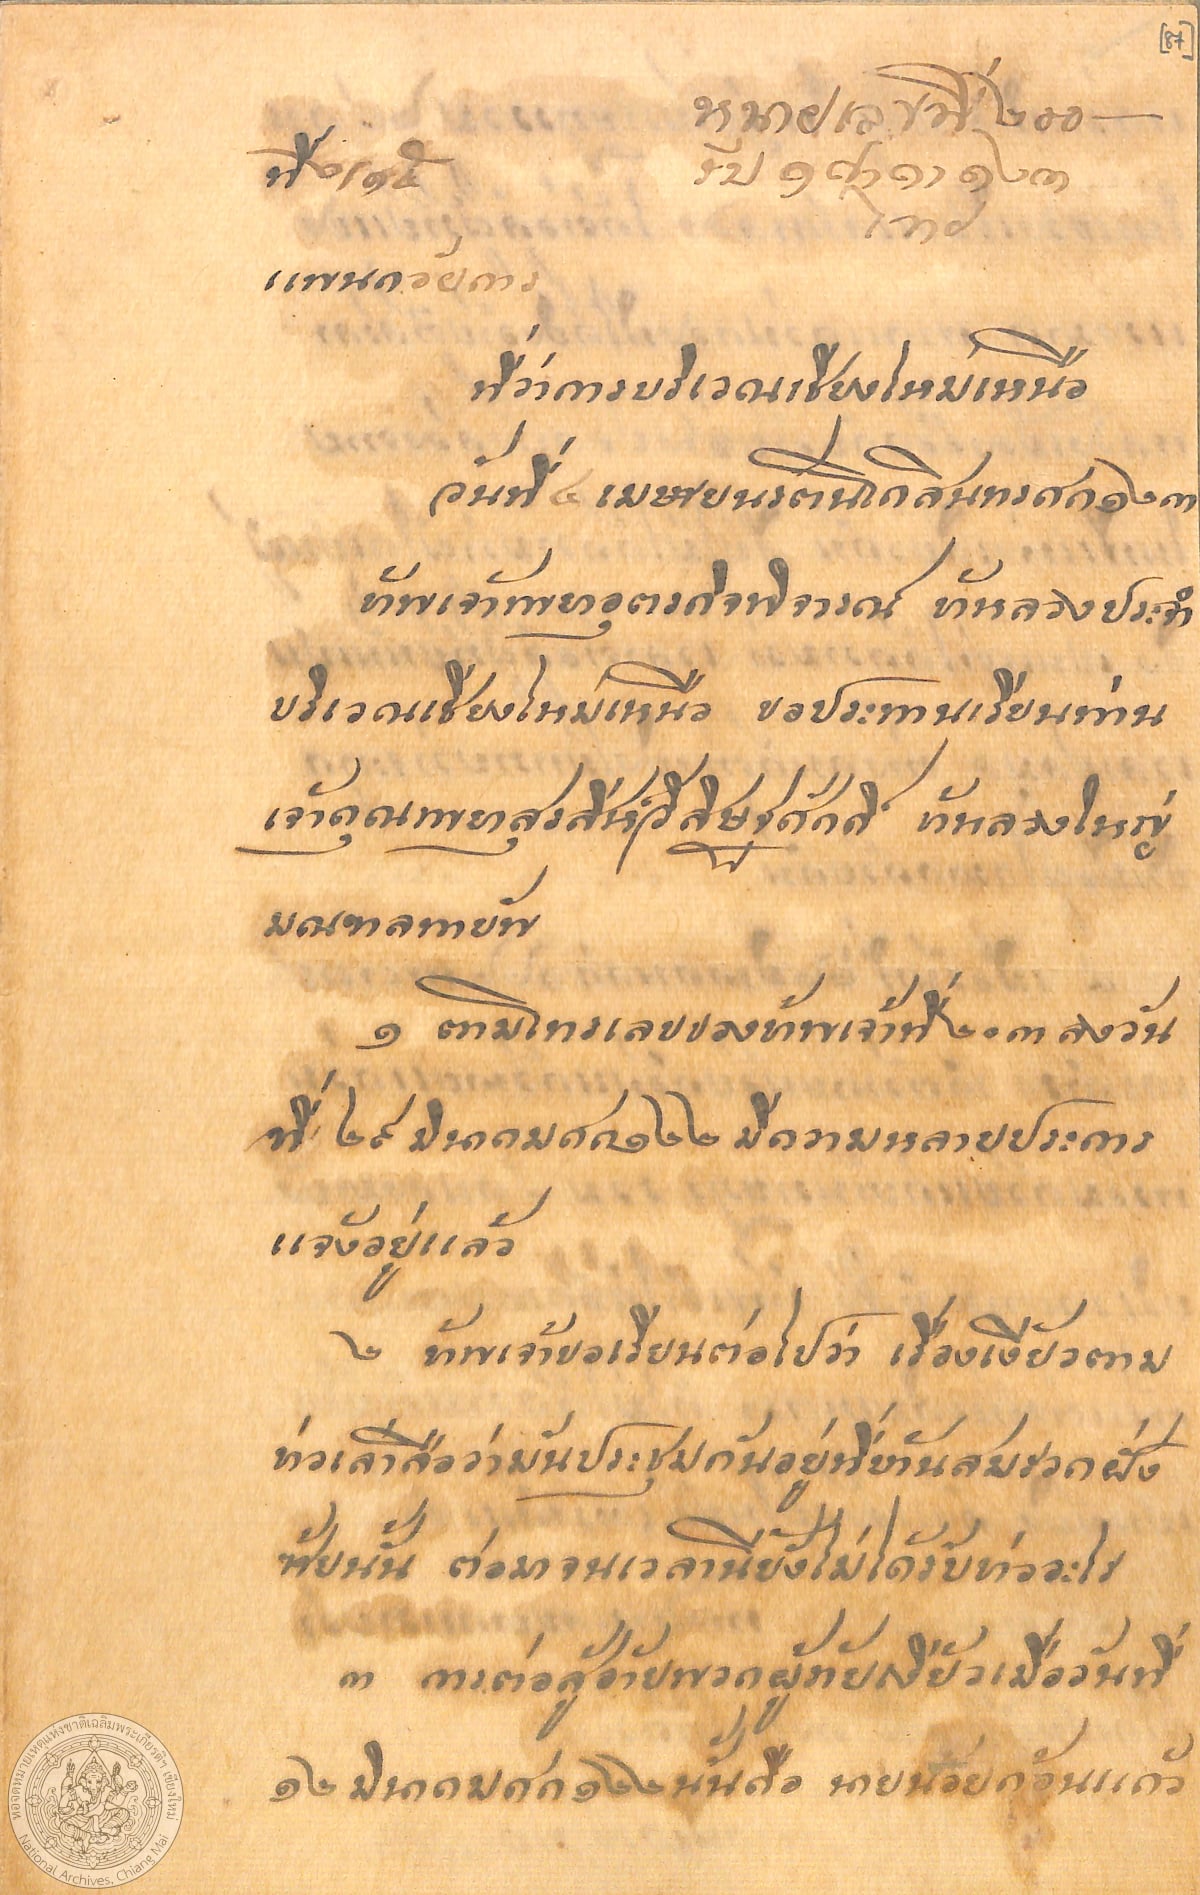 [87]
หมายเลขที่ ๒๐๐
ที่ ๒/๑๕
รับ ๑ ๑๒๓
ไทย
แพนกอัยการ
ที่ว่าการบริเวณเชียงใหม่เหนือ
วันที่ ๔ เมษายนรตนโกสินทรศก๑๒๓
ข้าพเจ้าพยาอุตรกิจพิจารณ์ ข้าหลวงประจำ
บริเวณเชียงใหม่เหนือ ขอประทานเรียนท่าน
เจ้าคุณพยาสุรสีห์วิสิษฐศักดิ์ ข้าหลวงใหญ่
มณฑลพายัพ
๑ ตามโทรเลขของข้าพเจ้าที่ ๒๐๓ ลงวัน
ที่ ๒๙ มีนาคมศก๑๒๒ มีความหลายประการ
แจ้งอยู่แล้ว
๒ ข้าพเจ้าขอเรียนต่อไปว่า เรื่องเงี้ยวตาม
ข่าวเล่าลือว่ามันประชุมกันอยู่ที่ฝั่ง
นั้น ต่อมาจนเวลานี้ยังไม่ได้รับข่าวอะไร
๓ การต่อสู้อ้ายพวกผู้ร้ายเงี้ยวเมื่อวันที่
๑๒ มีนาคมศก๑๒๒นั้นคือ นายน้อยก้อนแก้ว
หอจดหมายเหตุแห่งชาติเฉลิมพระเกียรติฯ เชียงใหม่
National Archives, Chiang Mai